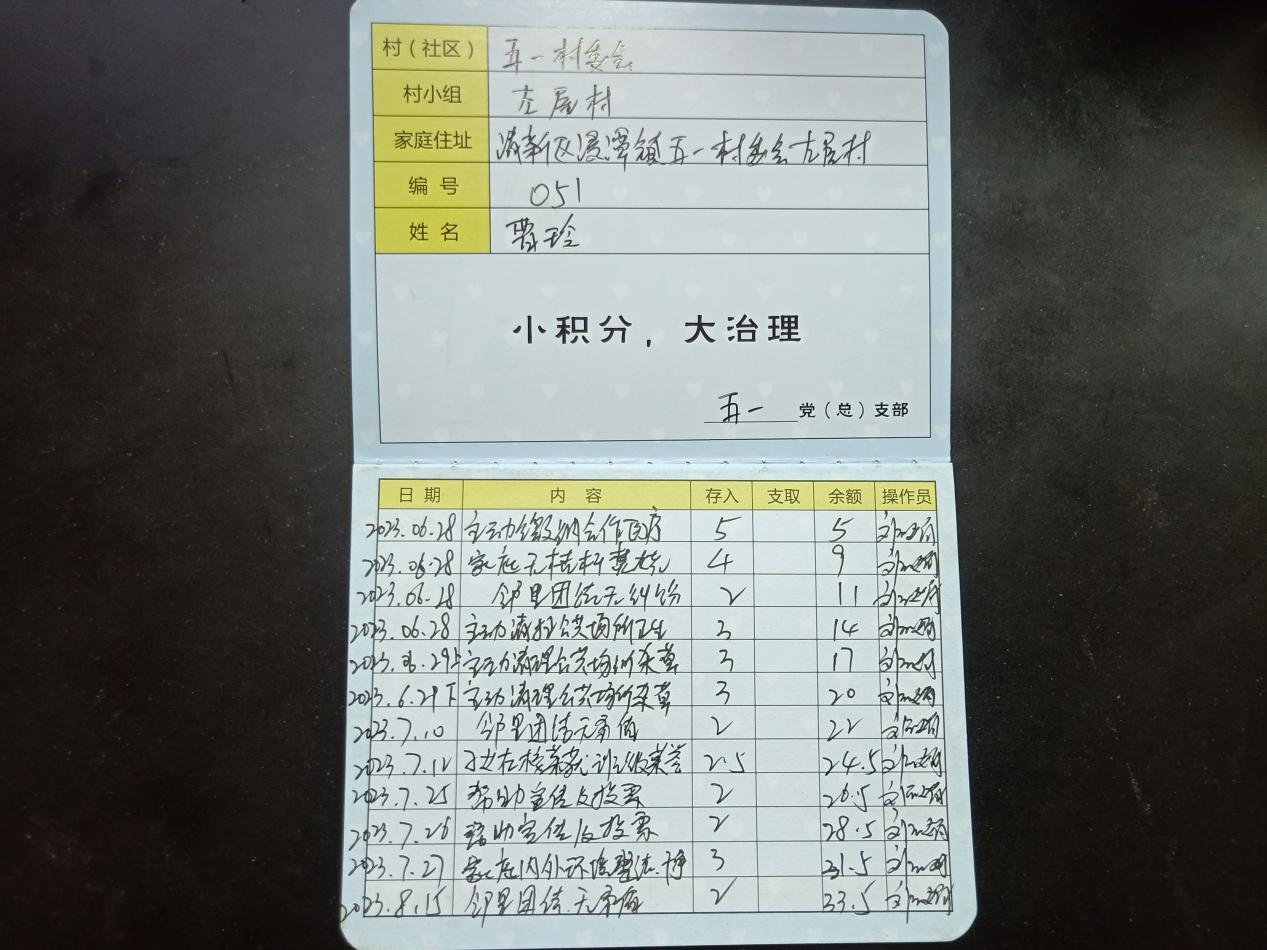 村（社区） 五一村委会
村小组 左居村
家庭住址 清新区浸潭镇五一村委会左居村
编 号 051
姓 名 曹玲
小积分，大治理
五一 党（总）支部
日 期 内 容 存入 支取 余额 操作员
2023.06.28 主动缴纳合作医疗 5 5
2023.06.28 家庭无秸秆焚烧 4 9
2023.06.28 邻里团结无纠纷 2 11
2023.06.28 主动清扫公共场所卫生 3 14
2023.06.29上 主动清理公共场所杂草 3 17
2023.6.29下 主动清理公共场所杂草 3 20
2023.7.10 邻里团结无矛盾 2 22
2023.7.12 子女在校 2.5 24.5
2023.7.25 帮助宣传及投票 2 26.5
2023.7.26 帮助宣传及投票 2 28.5
2023.7.27 家庭内外环境整洁.净 3 31.5
2023.8.15 邻里团结.无矛盾 2 33.5